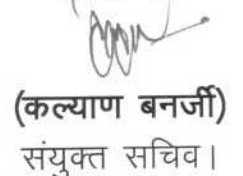 (कल्याण बनर्जी)
संयुक्त सचिव।